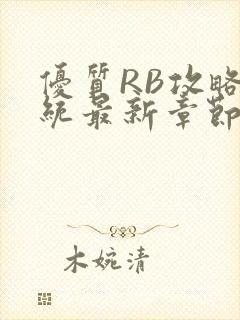 優質RB攻略
統最新章節
木婉清